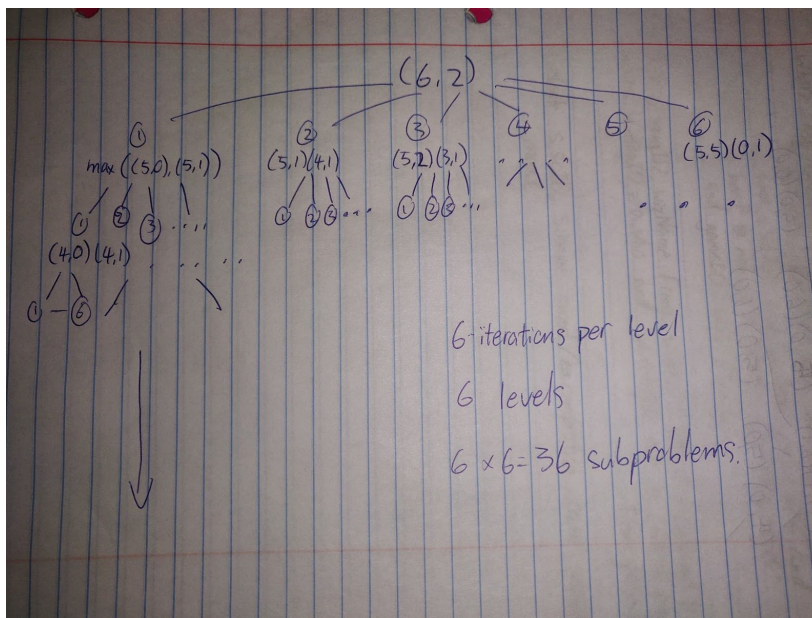 (6,2)
① ② ③ ④ ⑤ ⑥
max((5,0),(5,1)) (5,1)(4,1) (5,2)(3,1) . . . . (5,5)(0,1)
① ② ③ .... ① ② ③ .... ① ② ③ ... . . .
(4,0)(4,1) . . . . .
① — ⑥
6-iterations per level
6 levels
6 x 6=36 subproblems.